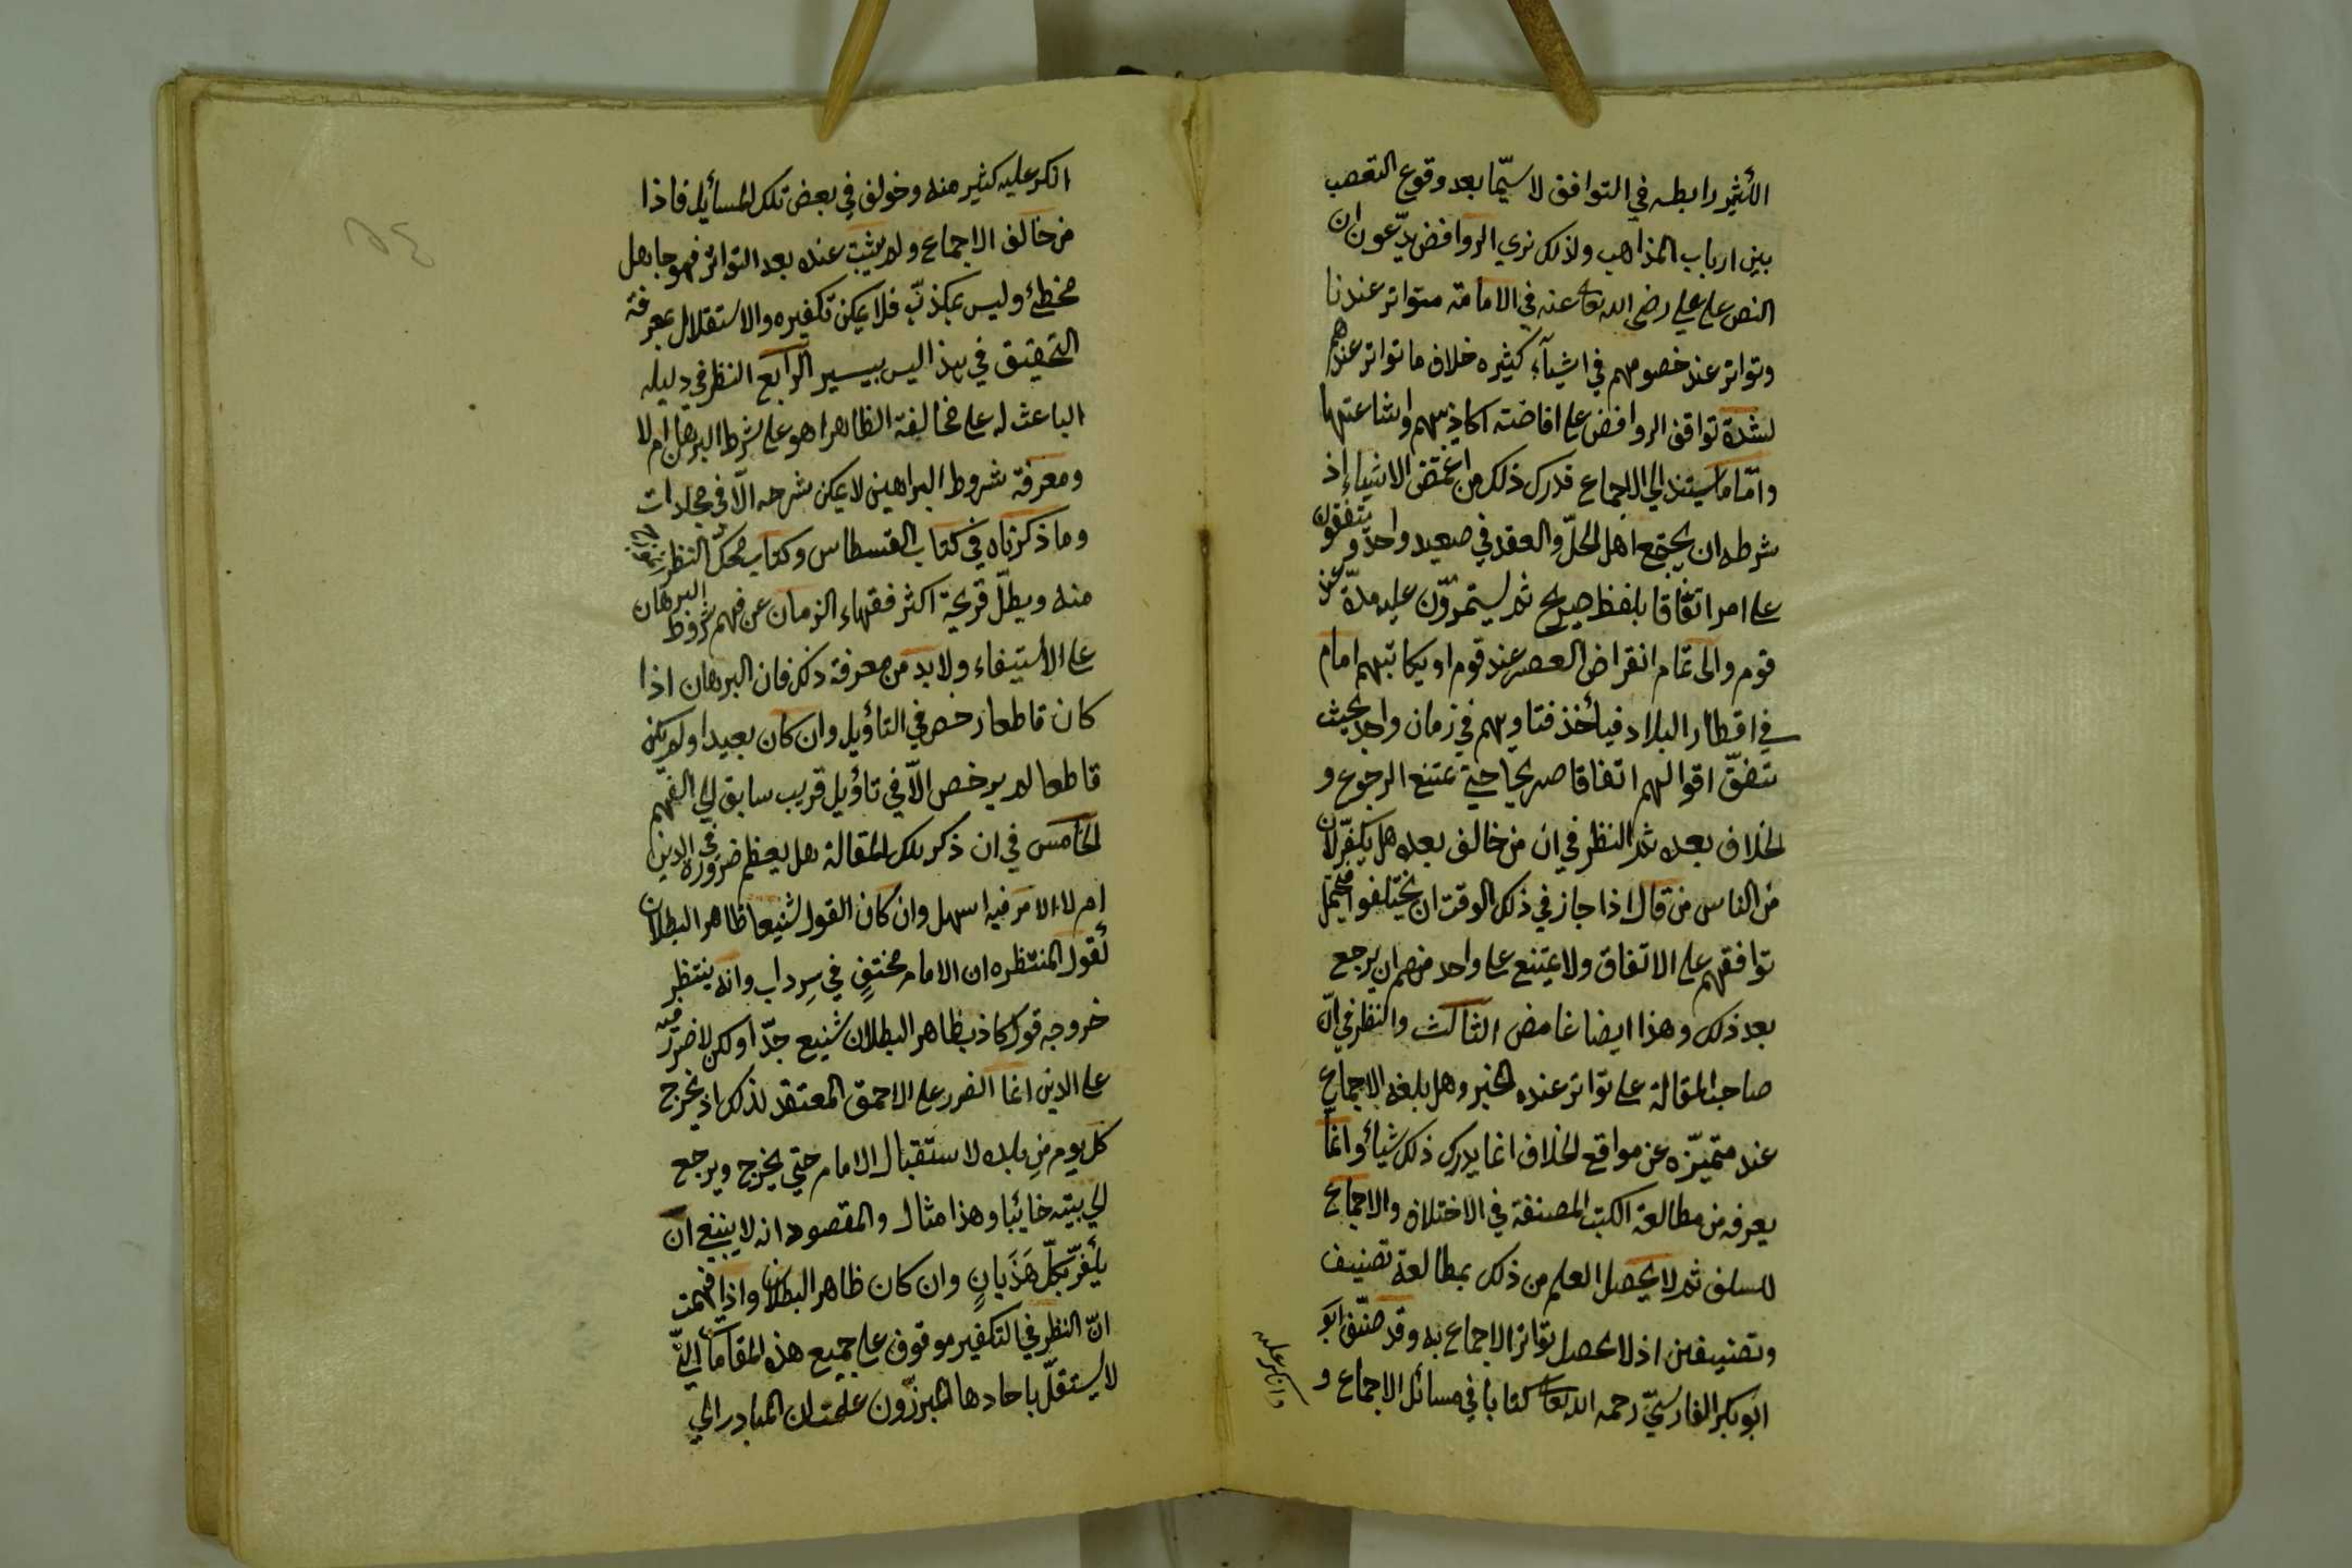 الكثير رابطه في التوافق لا سيّما بعد وقوع التعصب
بين ارباب المذاهب ولذلك نرى الروافض يدّعون ان
النص على علي رضي الله تعا عنه في الامامة متواتر عندنا
وتواتر عند خصومهم في اشيآء كثيره خلاف ما تواتر عندهم
لشدة توافق الروافض على افاضته اكاذيبهم واشاعتها
وامّا ما يستند الى الاجماع فدرك ذلك من اغمض الاشياء اذ
شرطه ان يجتمع اهل الحلّ والعقد في صعيد واحد ويتفقون
على امر اتفاقا بلفظ صريح ثم يستمرّون عليه مدّة عند
قوم والى تمام انقراض العصر عند قوم او يكاتبهم امام
في اقطار البلاد فيأخذ فتاويهم في زمان واحد بحيث
تتفق اقوالهم اتفاقا صريحا حتى يمتنع الرجوع و
الخلاف بعده ثم النظر في ان من خالف بعده هل يكفّر لان
من الناس من قال اذا جاز في ذلك الوقت ان يختلفوا فيحتمل
توافقهم على الاتفاق ولا يمتنع على واحد منهم ان يرجع
بعد ذلك وهذا ايضا غامض الثالث والنظر في انّ
صاحب المقالة على تواتر عنده الخبر وهل بلغه الاجماع
عند متميّزه عن مواقع الخلاف انما يدرك ذلك شيأ وانما
يعرفه من مطالعة الكتب المصنفة في الاختلاف والاجماع
للسلف ثم لا يحصل العلم من ذلك بمطالعة تصنيف
وتصنيفين اذ لا يحصل تواتر الاجماع به وقد صنّف ابو
ابو بكر الفارسيّ رحمه الله تعا كتابا في مسائل الاجماع و
وانكر عليه
انكر عليه كثير منه وخولف في بعض تلك المسأيل فاذا
من خالف الاجماع ولم يثبت عنده بعد التواتر فهو جاهل
مخطئ وليس بمكذبّ فلا يمكن تكفيره والاستقلال بمعرفة
التحقيق في هذا ليس بيسير الرابع النظر في دليله
الباعث له على مخالفة الظاهر اهو على شرط البرهان ام لا
ومعرفة شروط البراهين لا يمكن شرحه الّا في مجلدات
وما ذكرناه في كتاب القسطاس وكتاب محكّ النظر
منه ويطلّ قريحة اكثر فقهاء الزمان عن فهم شروط البرهان
على الأستيفاء ولا بد من معرفة ذلك فان البرهان اذا
كان قاطعا رخص في التأويل وان كان بعيدا ولم يكن
قاطعا لم يرخص الّا في تأويل قريب سابق الى الفهم
الخامس في ان ذكر تلك المقالة هل يعظم ضروره في الدين
ام لا الامر فيه اسهل وان كان القول شنيعا ظاهر البطلان
لقول المنتظره ان الامام مختفٍ في سِرداب وانه ينتظر
خروجه قول كاذب ظاهر البطلان شنيع جدّا ولكن لا ضرر فيه
على الدين انما الضرر على الاحمق المعتقد لذلك اذ يخرج
كل يوم من بلده لاستقبال الامام حتى يخرج ويرجع
الى بيته خائبا وهذا مثال والمقصود انه لا ينبغي ان
يكفّر بكلّ هَذَيانٍ وان كان ظاهر البطلان واذا فهمت
انّ النظر في التكفير موقوف على جميع هذه المقامات التي
لا يستقلّ باحادها المبرزّون علمت ان المبادر الى